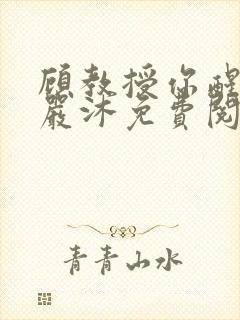 顾教授你醒
嚴沐免費閱
青青山水